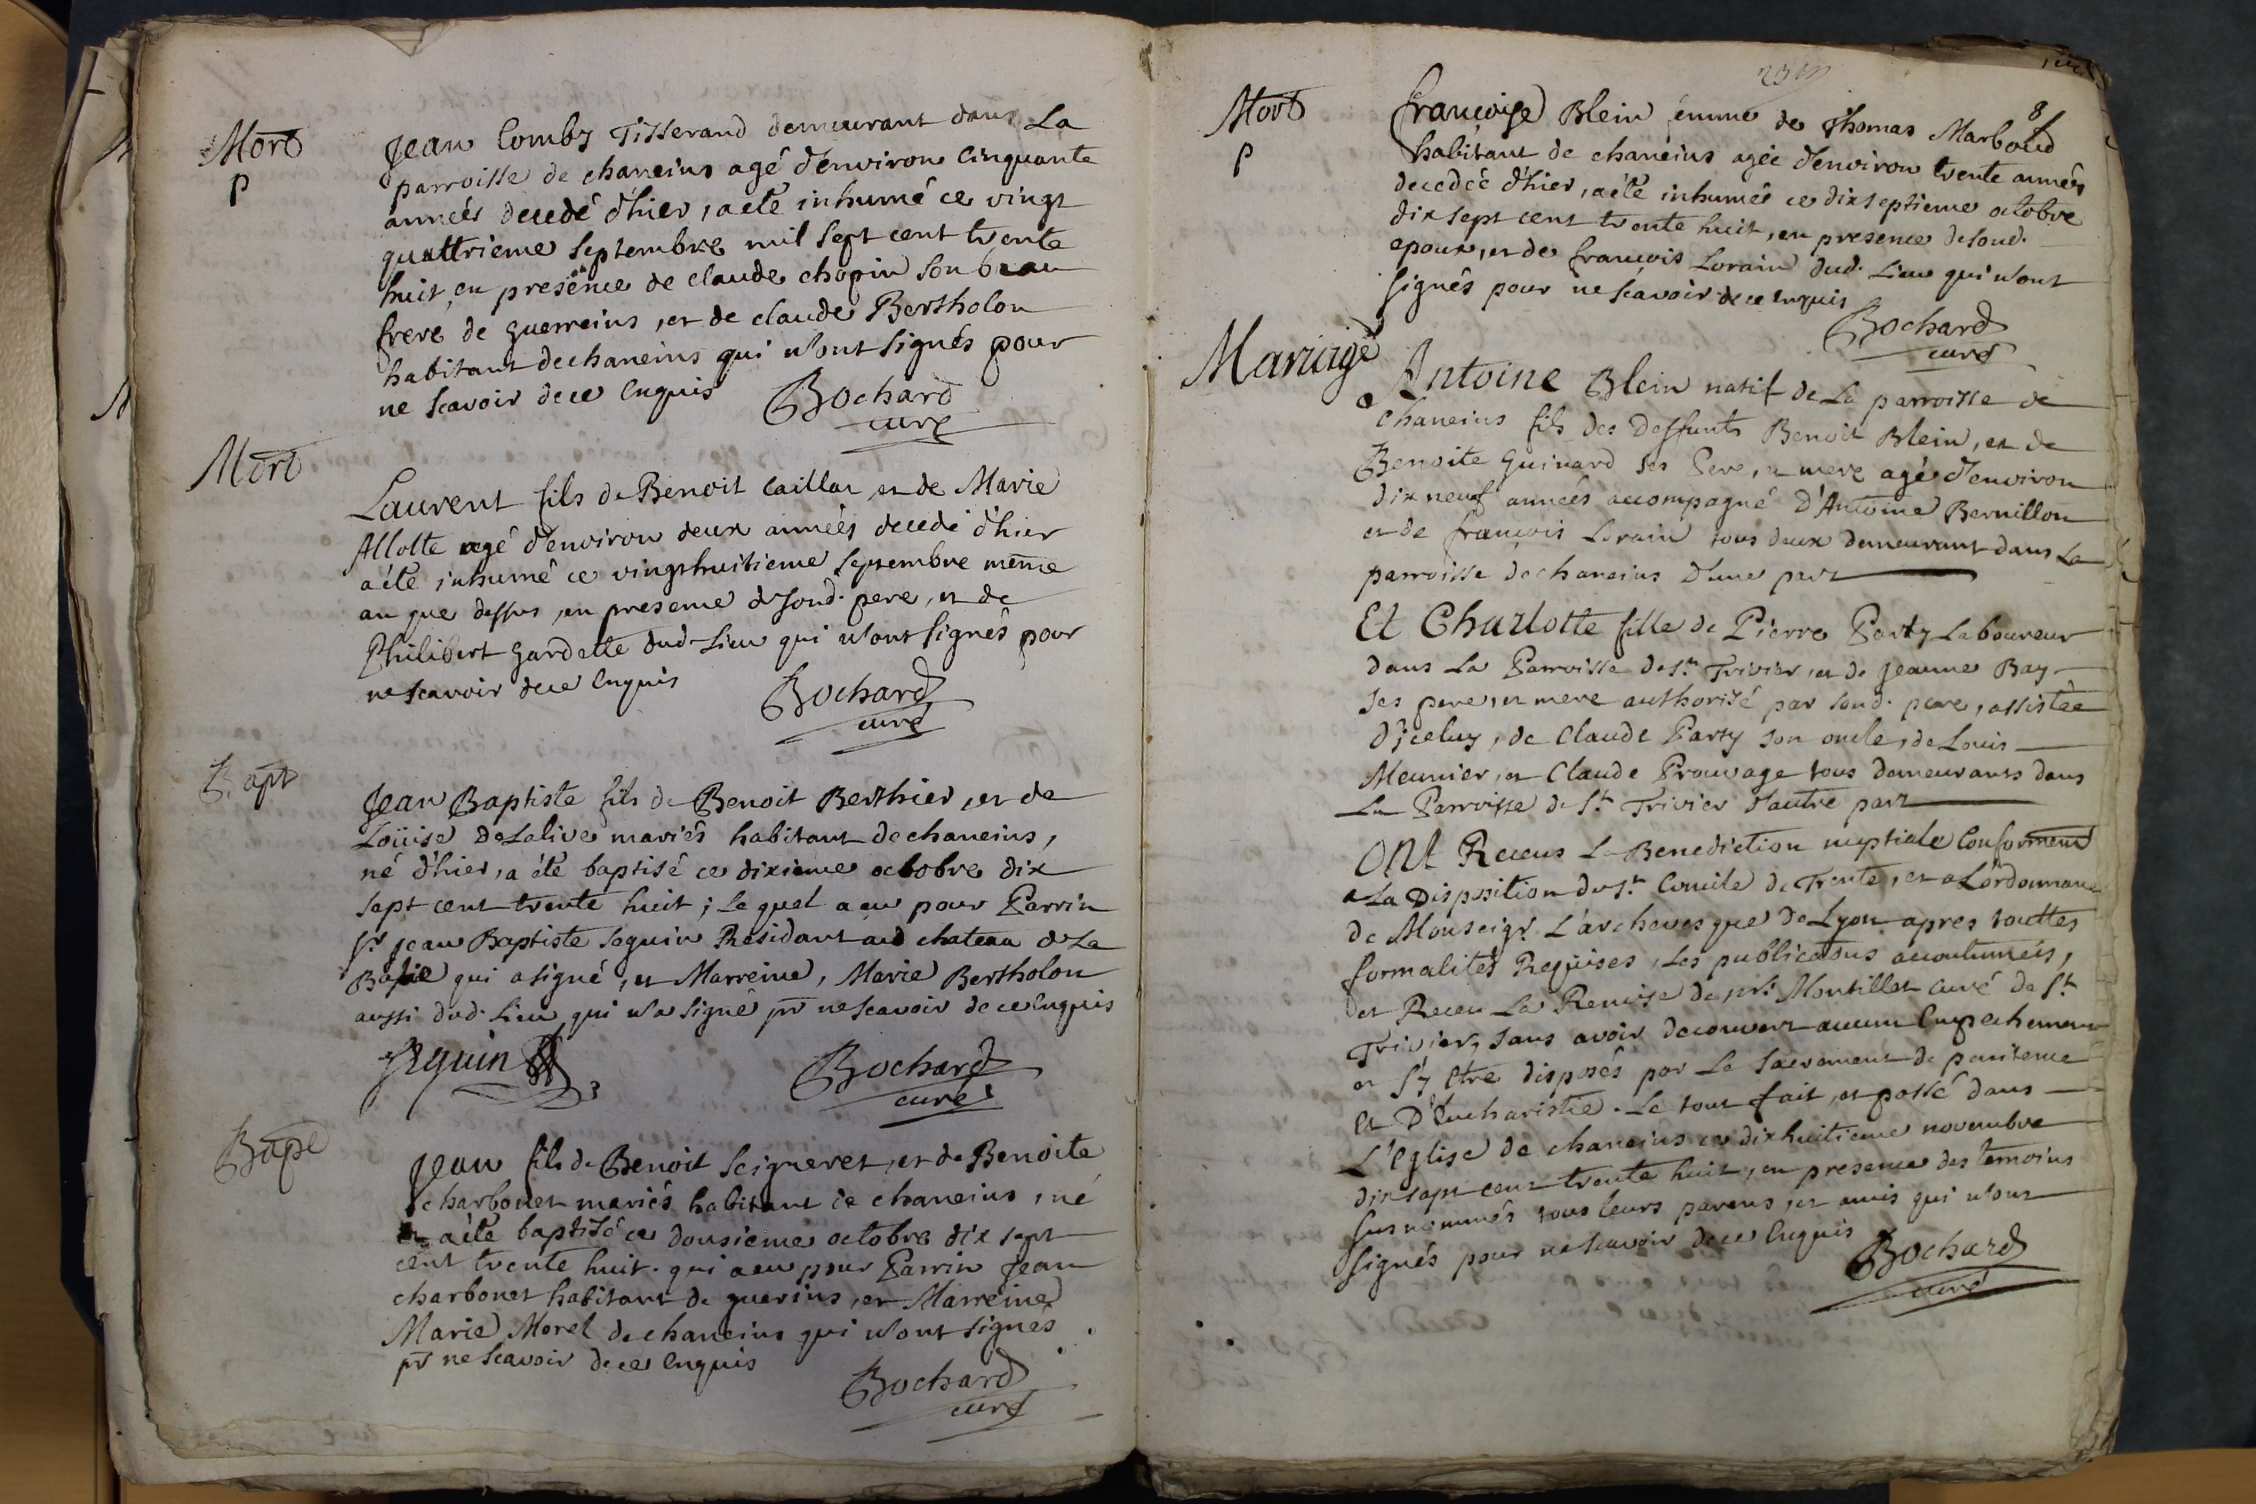 Mort
P
Jean Comby Tisserand demeurant dans La
parroisse de chaneins agé d'environ Cinquante
années decedé d'hier, a eté inhumé ce vingt
quattrieme septembre mil sept cent trente
huit, en presence de claude chopin son beau
frere de guerreins, et de claude Bertholon
habitant de chaneins qui n'ont signés pour
ne scavoir de ce Enquis
Bochard
curé
Mort
Laurent fils de Benoit Caillat et de Marie
Allotte agé d'environ deux années decedé d'hier
a été inhumé ce vingt huitieme septembre meme
an que dessus, en presence de sond. pere, et de
Philibert Gardette dud. Lieu qui n'ont signés pour
ne scavoir de ce Enquis
Bochard
curé
Bapt
Jean Baptiste fils de Benoit Berthier, et de
Loüise Delalive mariés habitant de chaneins,
né d'hier, a été baptisé ce dixieme octobre dix
sept cent trente huit; Le quel a eu pour Parrin
sr. Jean Baptiste Seguin Residant aud chateau de La
Batie qui a signé, et Marreine, Marie Bertholon
aussi dud. Lieu qui n'a signé pr ne scavoir de ce Enquis
Seguin
Bochard
curé
Bapt
Jean fils de Benoit Seigneret, et de Benoite
charbonet mariés habitant de chaneins, né
et a été baptisé ce dousieme octobre dix sept
cent trente huit. qui a eu pour Parrin Jean
charbonet habitant de guerins, et Marreine
Marie Morel de chaneins qui n'ont signés
pr ne scavoir de ce Enquis
Bochard
curé
8
Mort
P
françoise Blein femme de Thomas Marboud
habitant de chaneins agée d'environ trente années
decedée d'hier, a été inhumée ce dix septieme octobre
dix sept cent trente huit, en presence de sond.
epoux, et de françois Lorain dud. Lieu qui n'ont
signés pour ne scavoir de ce Enquis
Bochard
curé
Mariage
Antoine Blein natif de La parroisse de
chaneins fils des deffunts Benoit Blein, et de
Benoite Guinard ses Pere, et mere agé d'environ
dix neuf années accompagné D'Antoine Bernillon
et de françois Lorain tous deux demeurant dans La
parroisse de chaneins d'une part
Et Charlotte fille de Pierre Party Laboureur
dans La Parroisse de st. Trivier, et de Jeanne Bay
ses pere, et mere authorisé par sond. pere, assistée
D'iceluy, de Claude Party son oncle, de Louis
Meunier, et Claude Prouvage tous demeurants dans
La Parroisse de st. Trivier d'autre part
ONt Receus La Benediction nuptiale Conformemt
a La Disposition du st. Concile de Trente, et a L'ordonnance
de Monseigr. L'archevesque de Lyon apres touttes
formalités Requises, Les publications accoutumées,
et Receu La Remise de mr. Montillet curé de st.
Trivier, sans avoir decouvert aucun Empechement
et s'y Etre disposés par Le sacrement de penitence
Et D'Eucharistie. Le tout fait, et passé dans
L'Eglise de chaneins ce dix huitieme novembre
dix sept cent trente huit, en presence des temoins
susnommés tous leurs parens, et amis qui n'ont
signés pour ne scavoir de ce Enquis
Bochard
curé